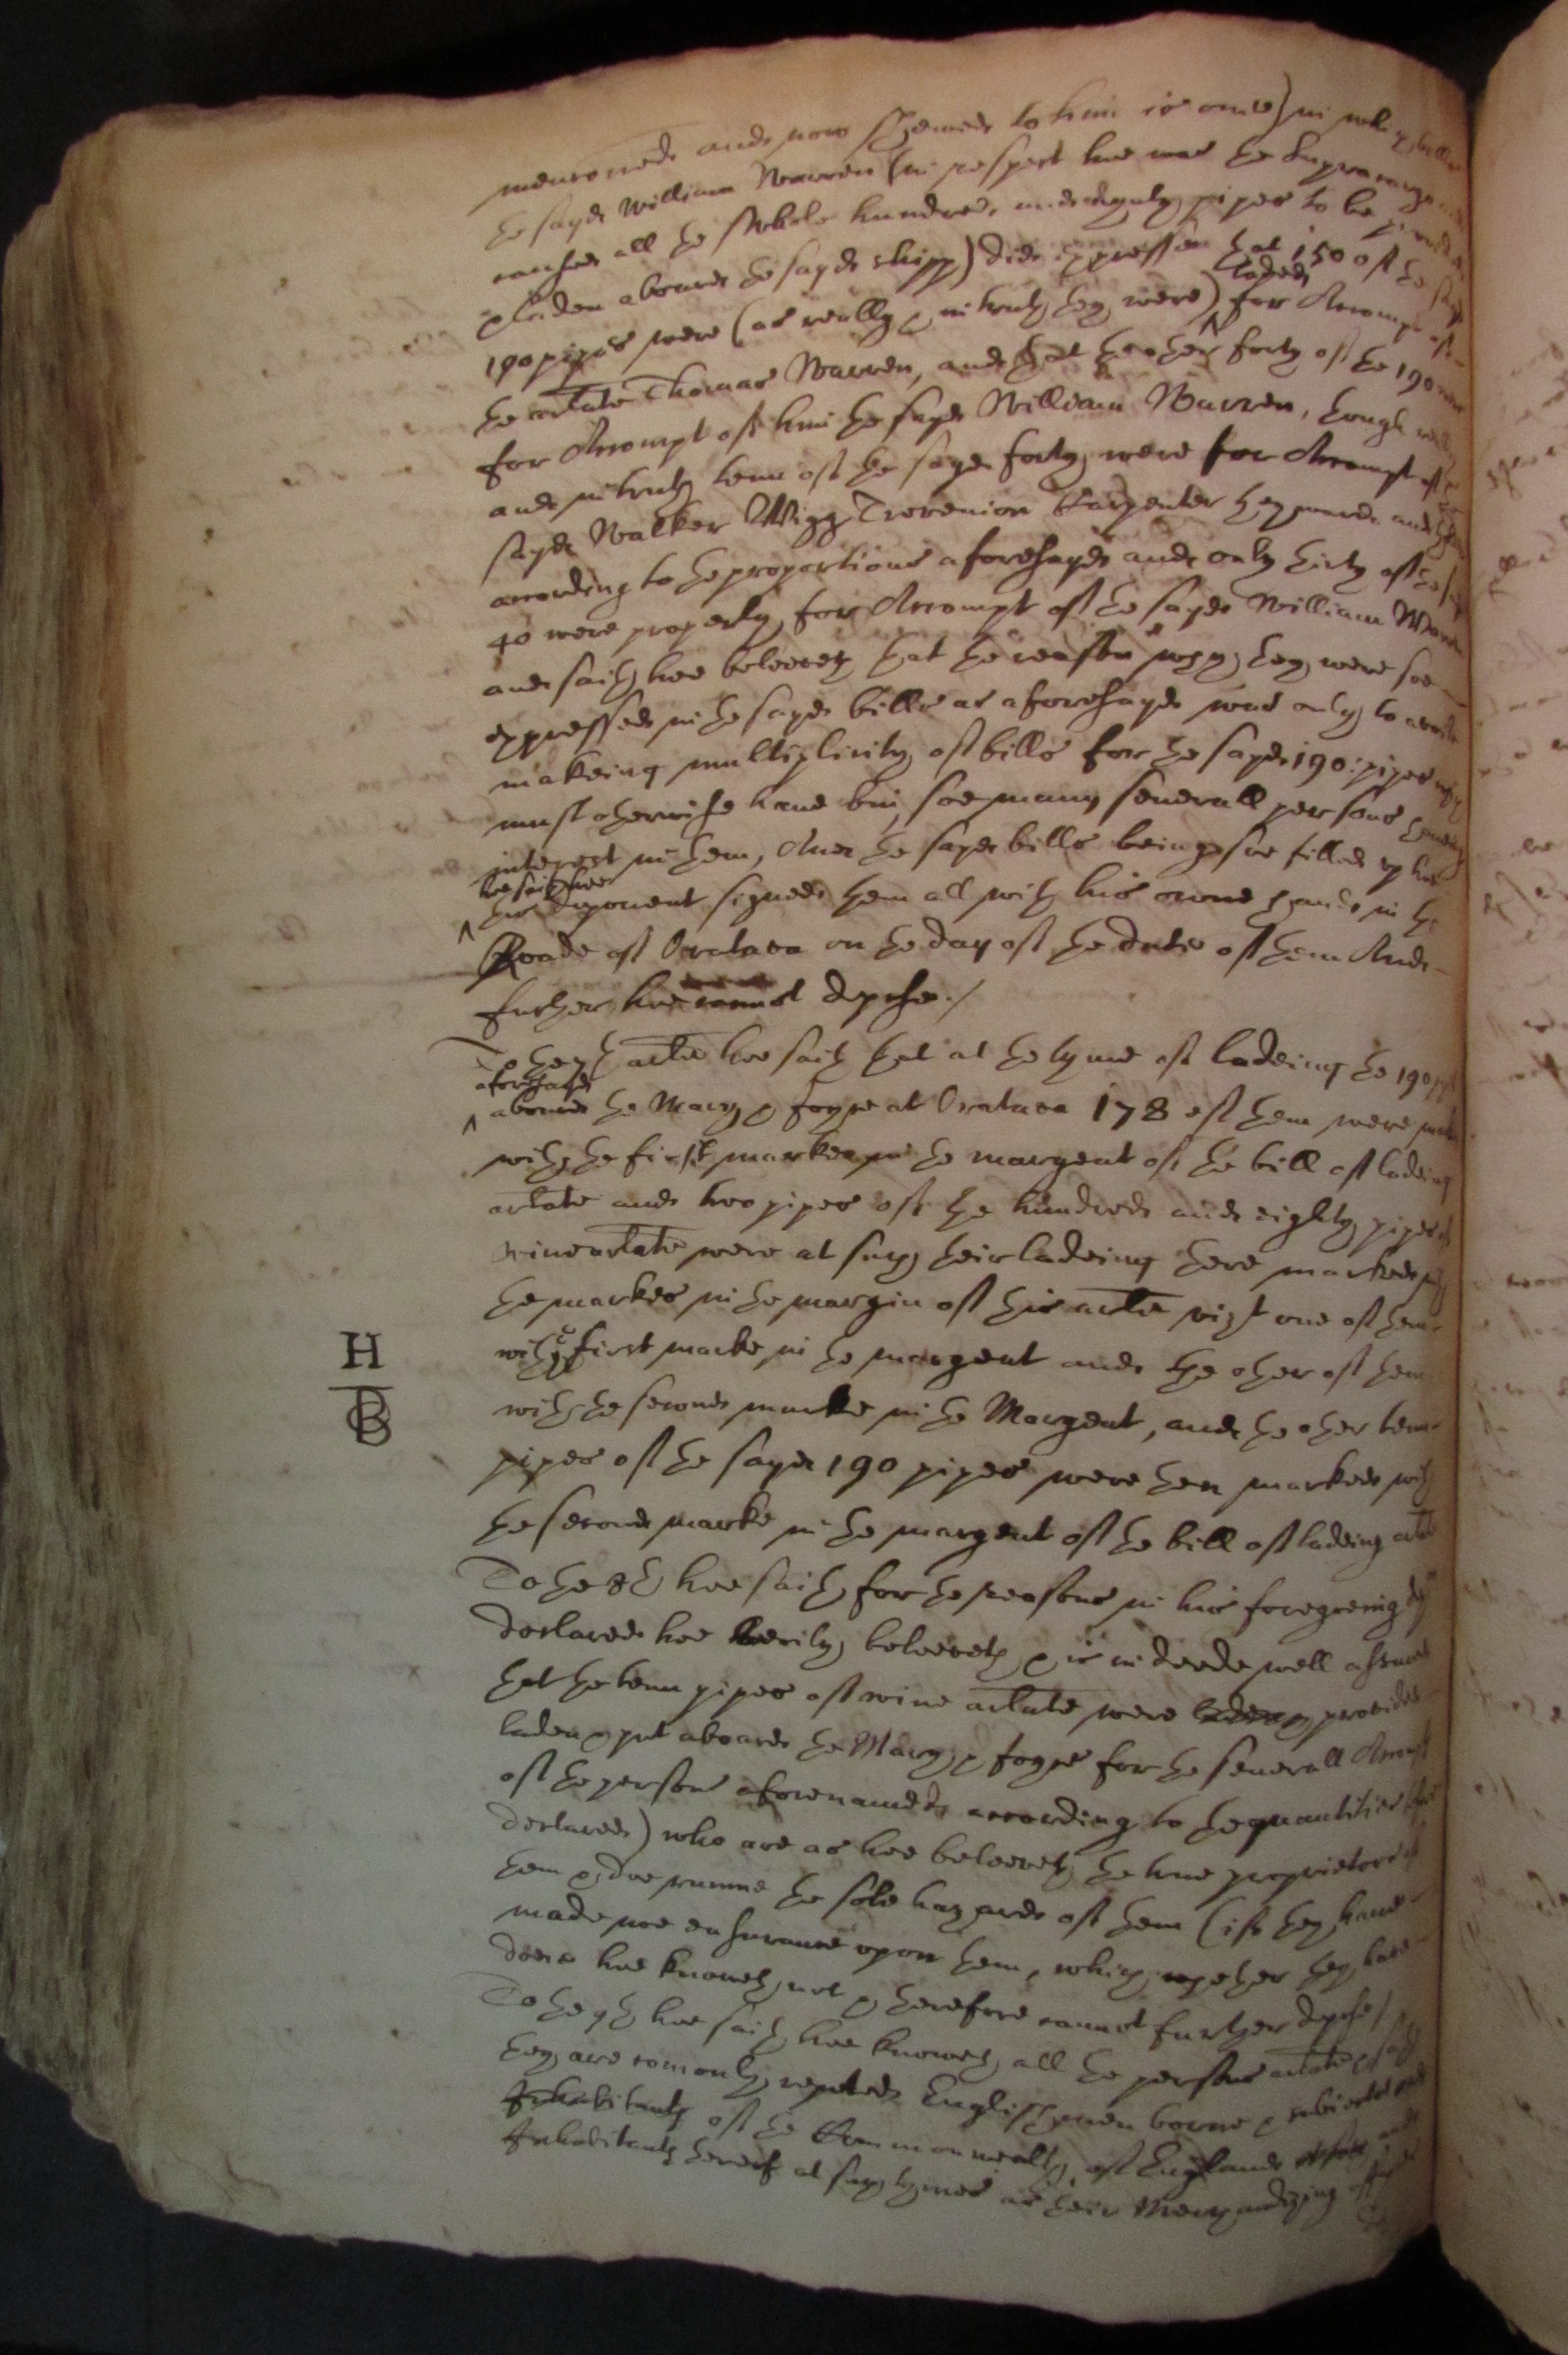 mentioned and now shewed to him is one) in which bills
the sayd William Warren (in respect hee was the Supracargo and
caused all the whole hundred and eighty pipes to be
laden aboard the sayd shipp) did expresse that 150 of the sayd
190 pipes were (as really & in truth they were) laded for Accompt of
the arlate Thomas Warren, and that the other forty of the 190 were
for Accompt of him the sayd William Warren, though really
and in truth tenn of the sayd forty were for Accompt of the
sayd Walker Wigg Carpenter and
according to the proportions aforesayd and only thirty of the sayd
40 were properly for Accompt of the sayd William Warren
and saith hee beleeveth that the reason why they were soe
expressed in the sayd bills as aforesayd was only to avoide
makeing multiplicity of bills for the sayd 190: pipes
must otherwise have bin, soe many severall persons haveing
interest in them, And the sayd bills being soe filled up hee
hee saith hee
this deponent signed them all with his owne hande in the
Roade of Oratava on the day of the date of them And
further hee cannot depose./
To the 7th arle hee saith that at the tyme of ladeing the 190 pipes
aforesayd
aboard the Mary & Joyce at Oratava 178 of them were marked
with the first marke in the margent of the bill of ladeing
arlate and two pipes of the hundred and eighty pipes of
wine arlate were at such their ladeing there marked with
the markes in the margin of this arle vizt one of them
with ye first marke in the margent and the other of them
with the second marke in the Margent, and the other tenn
pipes of the sayd 190 pipes were then marked with
the second marke in the margent of the bill of ladeing arlate
H
B
To the 8th hee saith for the reasons in his foregoeing
declared hee verily beleeveth & is indeede well assured
that the tenn pipes of wine arlate were provided
laden & put aboard the Mary & Joyce for the severall Accompts
of the persons aforenamed according to the quantities
declared) who are as hee beleeveth the true proprietors of
them & doe runne the sole hazard of them (if they have
made noe ensurance upon them, which whether they have
done hee knoweth not & therefore cannot further depose/
To the 9th hee saith hee knoweth all the persons arlate &
they are comonly reputed Englishmen borne & subiects
Inhabitants of the Commonwealth of England and
Inhabitants thereof at such tymes as their Merchandizing